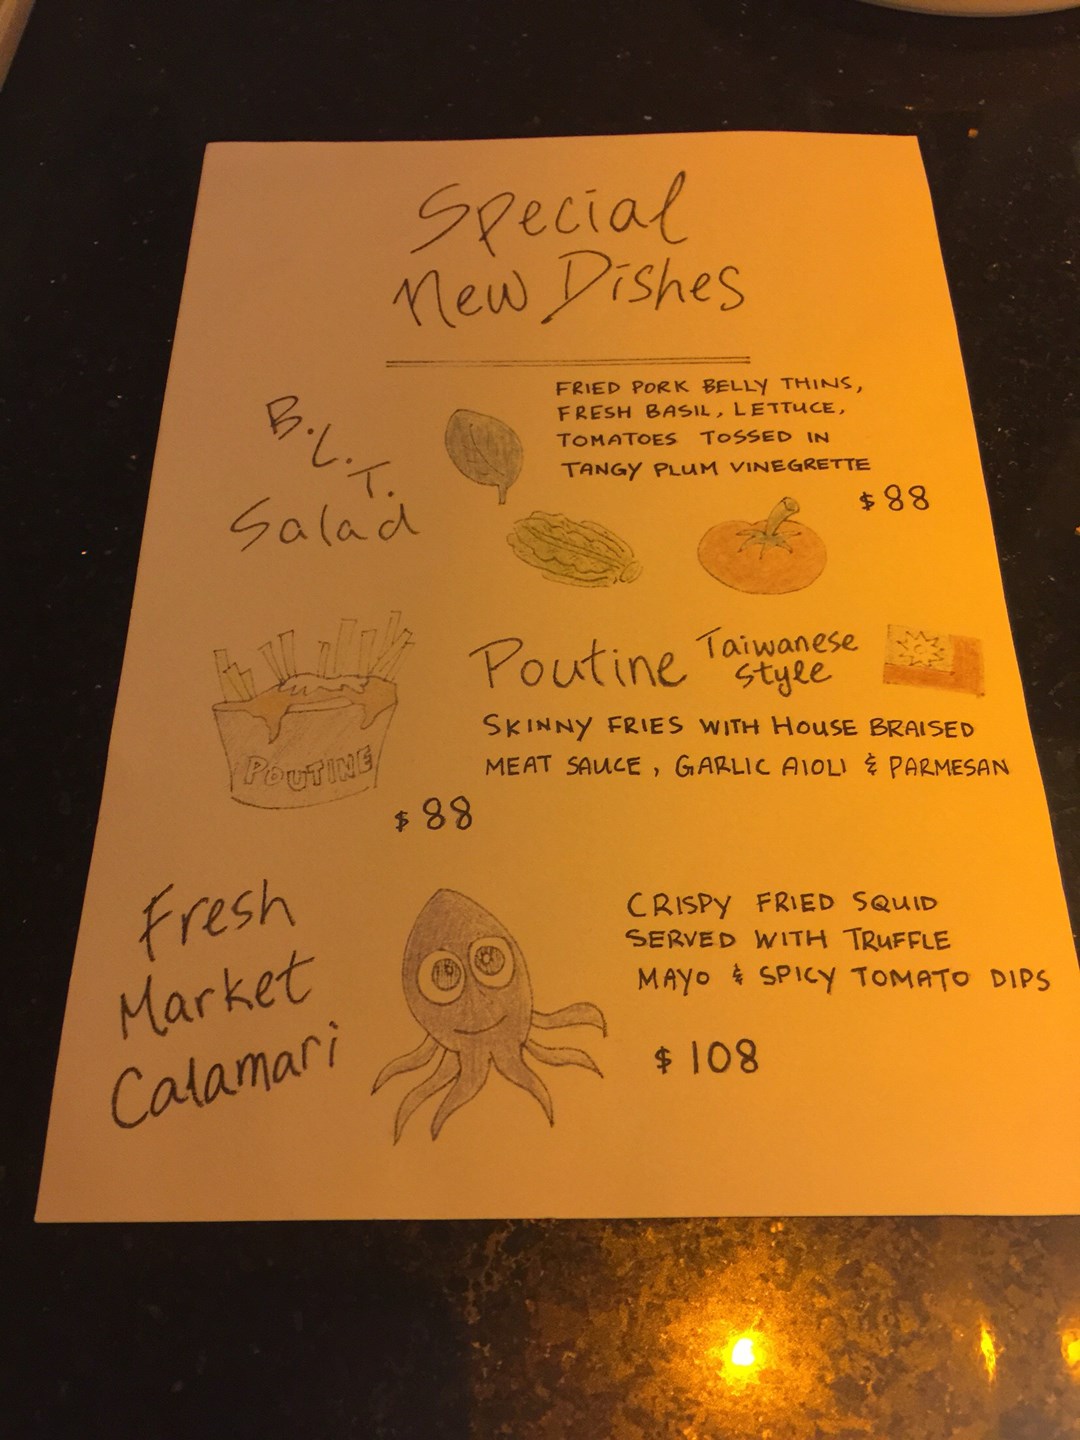 Special
New Dishes
B.L.T.
Salad
FRIED PORK BELLY THINS,
FRESH BASIL, LETTUCE,
TOMATOES TOSSED IN
TANGY PLUM VINEGRETTE
$88
POUTINE
Poutine Taiwanese
Style
SKINNY FRIES WITH HOUSE BRAISED
MEAT SAUCE, GARLIC AIOLI & PARMESAN
$88
Fresh
Market
Calamari
CRISPY FRIED SQUID
SERVED WITH TRUFFLE
MAYO & SPICY TOMATO DIPS
$108